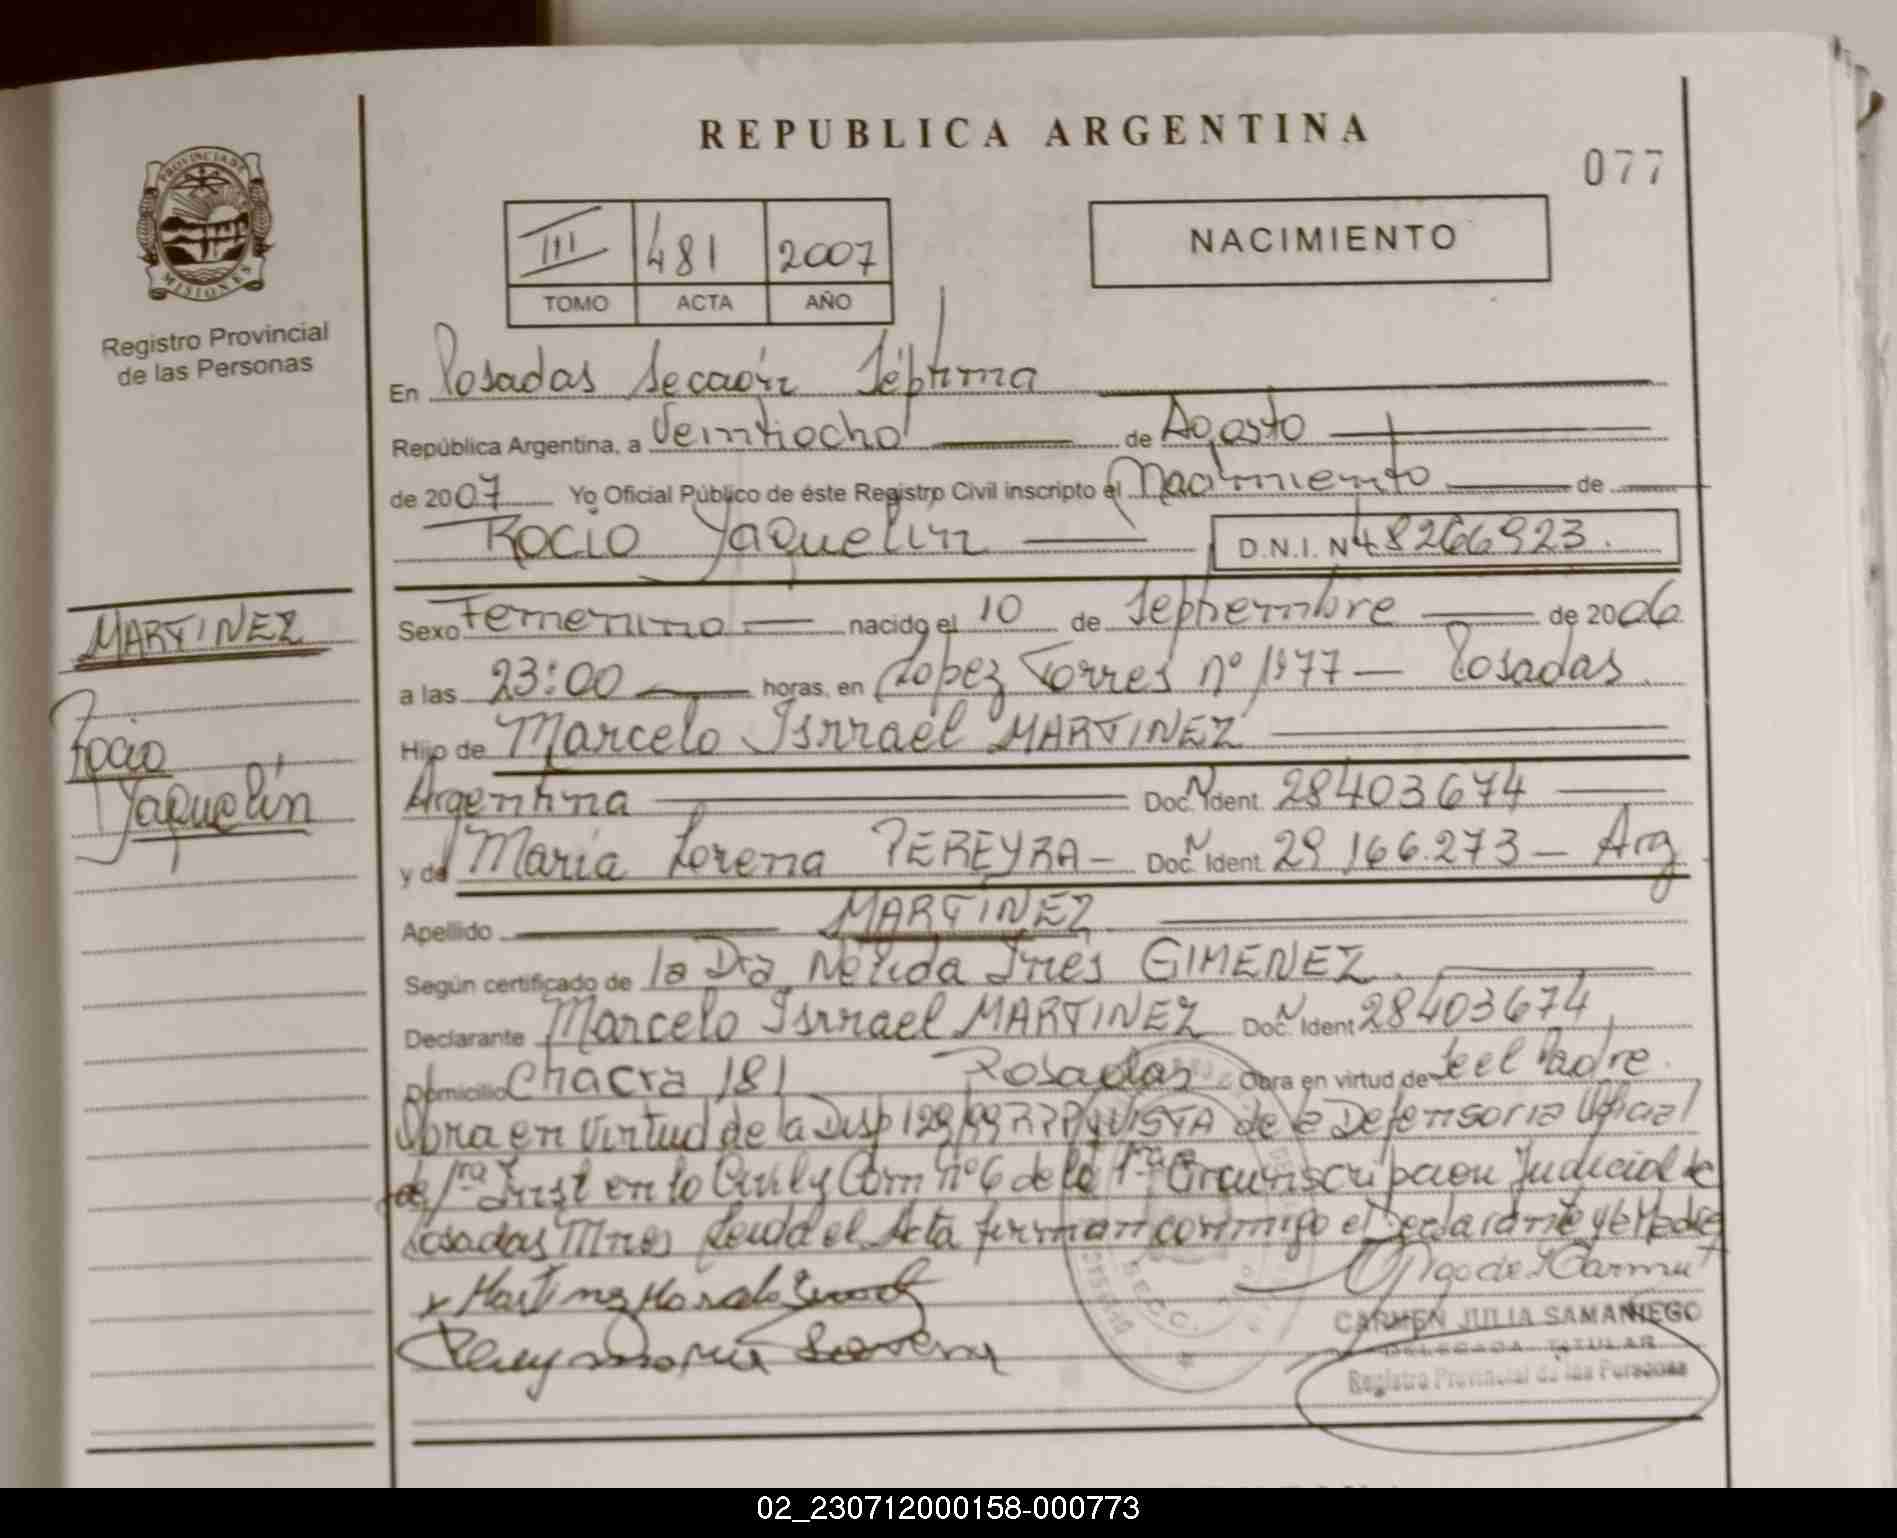 REPUBLICA ARGENTINA
077
PROVINCIA DE
MISIONES
Registro Provincial
de las Personas
III 481 2007
TOMO ACTA AÑO
NACIMIENTO
En Posadas Sección Séptima
República Argentina, a Veintiocho de Agosto
de 2007 Yo Oficial Público de éste Registro Civil inscripto el Nacimiento de
Rocio Yaquelin D.N.I. Nº 48266923.
MARTINEZ
Rocio
Yaquelin
Sexo Femenino nacido el 10 de Septiembre de 2006
a las 23:00 horas, en Lopez Torres nº 1977 – Posadas
Hijo de Marcelo Isrrael MARTINEZ
Argentina Doc. Ident. 28403674
y de Maria Lorena PEREYRA – Doc. Ident. 29.166.273 – Arg
Apellido MARTINEZ
Según certificado de la Dra Nélida Inés GIMENEZ
Declarante Marcelo Isrrael MARTINEZ Doc. Ident 28403674
Domicilio Chacra 181 Posadas Obra en virtud de Se el Padre.
Obra en Virtud de la Disp 129/99 RPP y VISTA de la Defensoria Oficial
de 1ra Inst en lo Civil y Com nº 6 de la 1ra Circunscripcion Judicial de
Posadas Mnes Leida el Acta firman conmigo el Declarante y la Madre
CARMEN JULIA SAMANIEGO
DELEGADA TITULAR
Registro Provincial de las Personas
02_230712000158-000773